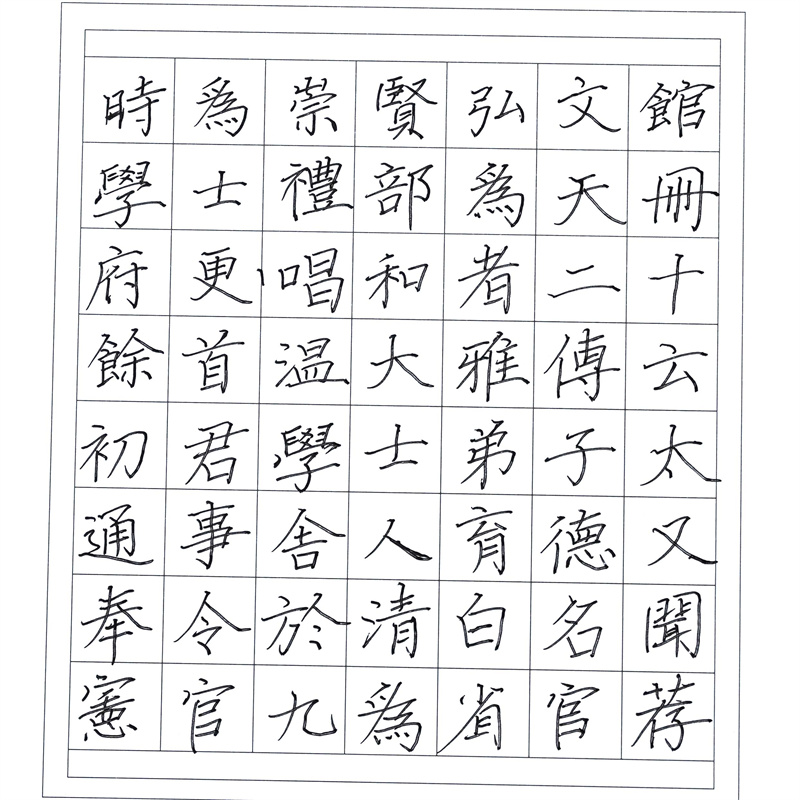 時爲崇賢弘文館
學士禮部爲天冊
府更唱和者二十
餘首温大雅傅云
初君學士弟子太
通事舍人育德又
奉令於清白名聞
憲官九爲省官荐